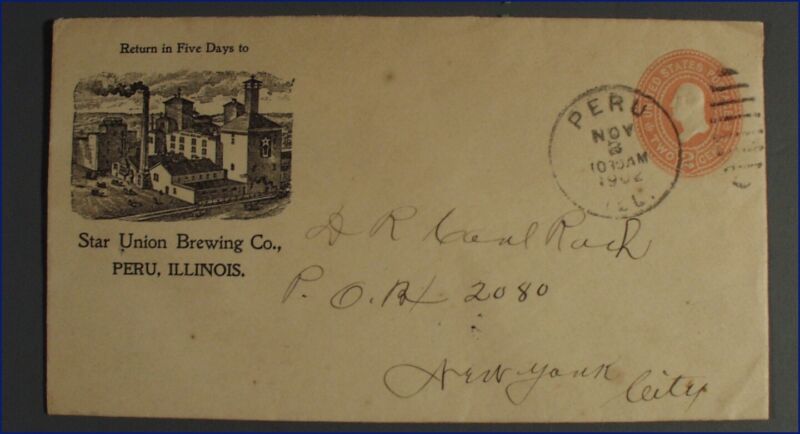 Return in Five Days to
Star Union Brewing Co.,
PERU, ILLINOIS.
PERU
NOV
1030AM
1902
ILL.
UNITED STATES POSTAGE
TWO CENTS
2
P. O. Bx 2080
New York
City